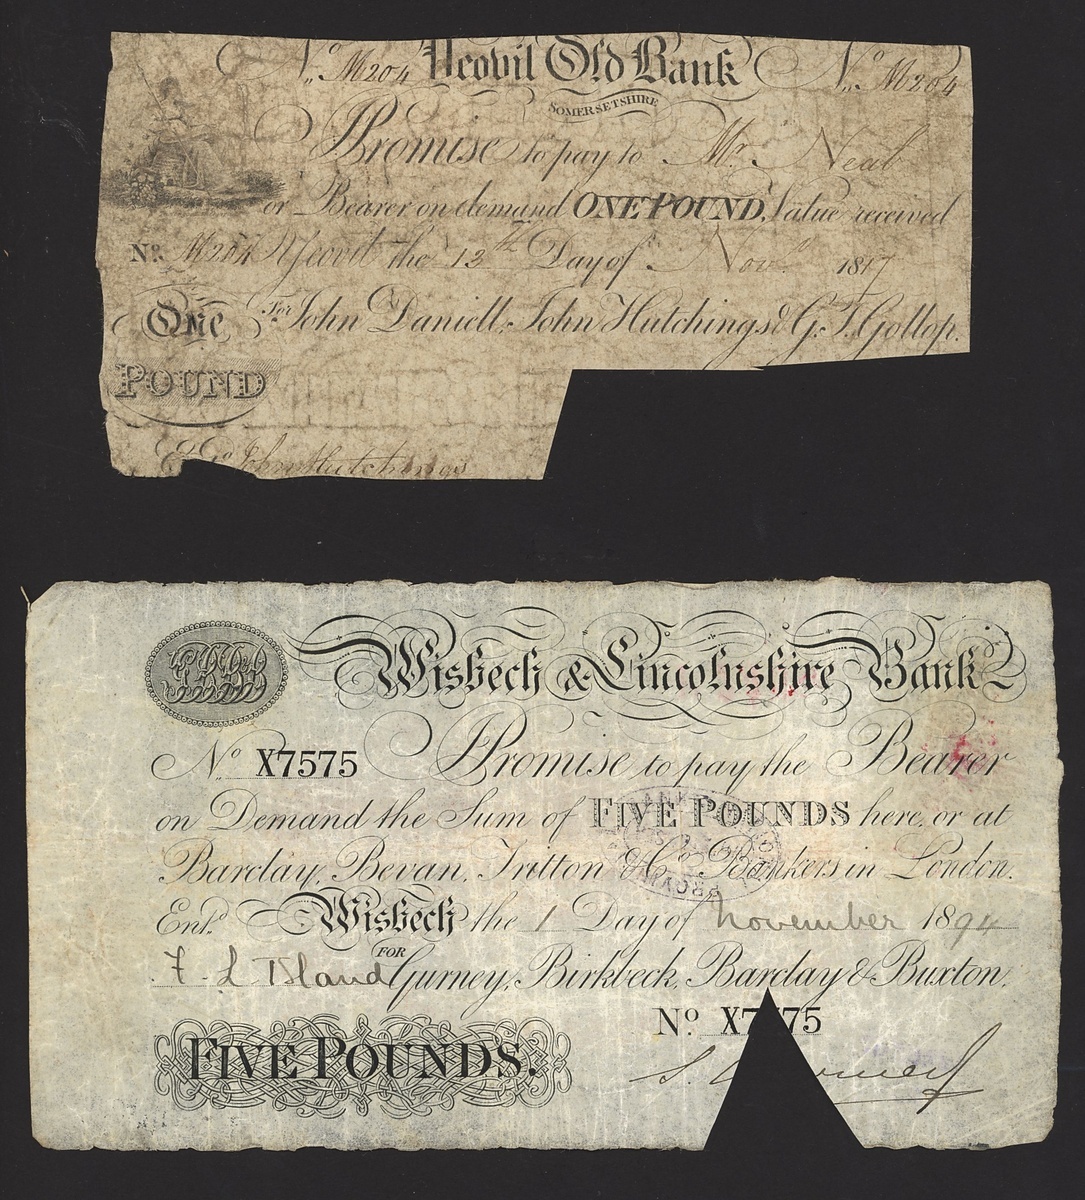 No. M204 Yeovil Old Bank No. M204
SOMERSETSHIRE
I Promise to pay to Mr. Neal
or Bearer on demand ONE POUND, Value received
No. M204 Yeovil the 13th Day of Novr. 1817
One For John Daniell, John Hutchings & G. T. Gollop.
POUND
Entd. John Hutchings
Wisbech & Lincolnshire Bank
No X7575 I Promise to pay the Bearer
on Demand the Sum of FIVE POUNDS here, or at
Barclay, Bevan, Tritton & Co. Bankers in London.
Entd. Wisbech the 1 Day of November 1894
F. L Island FOR Gurney, Birkbeck, Barclay & Buxton.
No X7575
FIVE POUNDS.